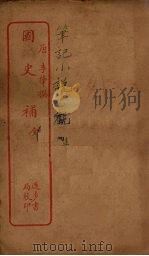 筆記小說
觀
唐李肇撰
國史補
進步書
局校印